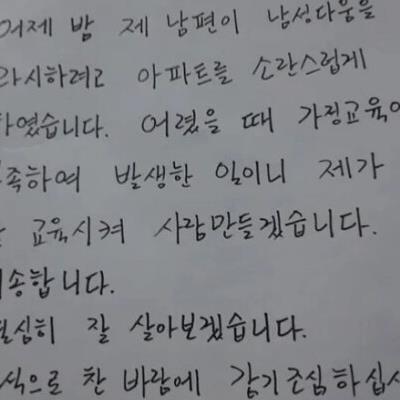 어제 밤 제 남편이 남성다움을
과시하려고 아파트를 소란스럽게
하였습니다. 어렸을 때 가정교육이
부족하여 발생한 일이니 제가
교육시켜 사람만들겠습니다.
죄송합니다.
열심히 잘 살아보겠습니다.
찬 바람에 감기조심하십시